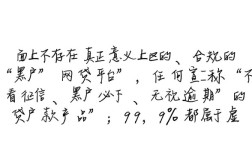 面上不存在真正意义上的、合规的
“黑户”网贷平台”,任何宣称“不
看征信、黑户必下、无视逾期”的
贷款产品”;99,9%都属于虚